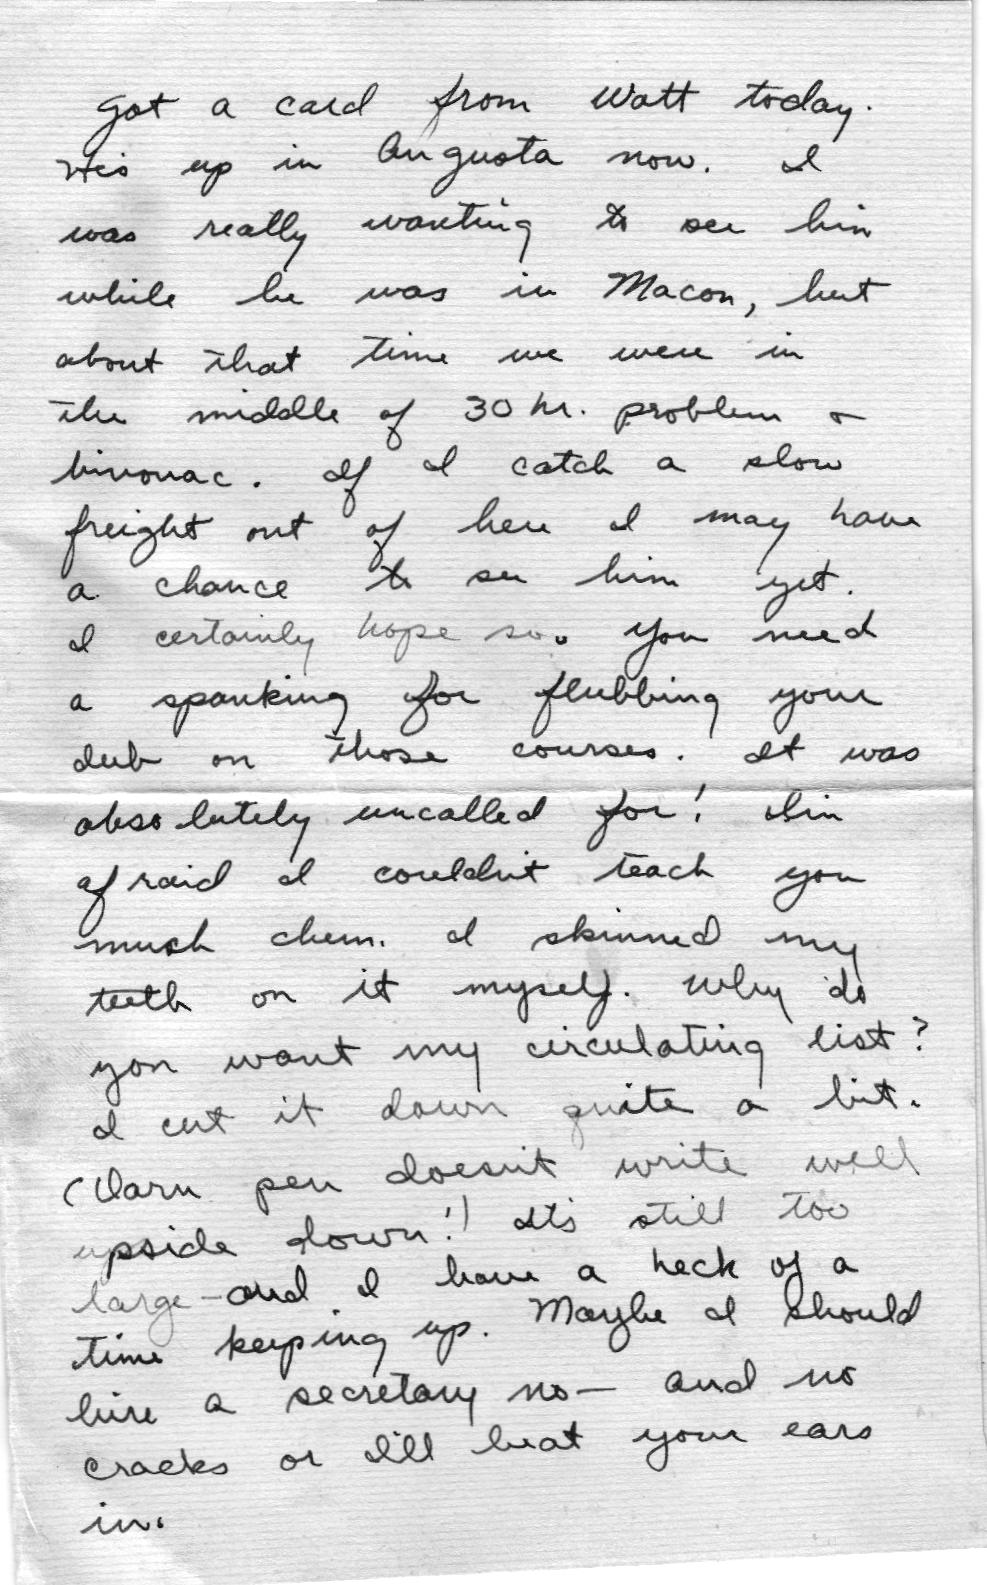 Got a card from Watt today.
He's up in Augusta now. I
was really wanting to see him
while he was in Macon, but
about that time we were in
the middle of 30 hr. problem &
bivouac. If I catch a slow
freight out of here I may have
a chance to see him yet.
I certainly hope so. You need
a spanking for flubbing your
dub on those courses. It was
absolutely uncalled for! I'm
afraid I couldn't teach you
much chem. I skinned my
teeth on it myself. Why do
you want my circulating list?
I cut it down quite a bit.
(Darn pen doesn't write well
upside down!) It's still too
large - and I have a heck of a
time keeping up. Maybe I should
hire a secretary no - and no
cracks or I'll beat your ears
in.